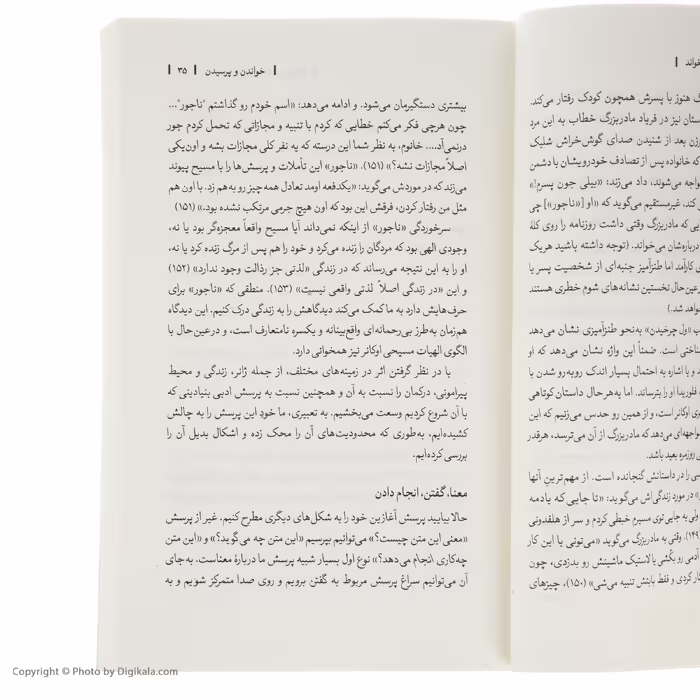 خواندن و پرسیدن | ۳۵ |
بیشتری دستگیرمان می‌شود. و ادامه می‌دهد: «اسم خودم رو گذاشتم "ناجور"...
چون هرچی فکر می‌کنم خطایی که کردم با تنبیه و مجازاتی که تحمل کردم جور
درنمی‌آد.... خانوم، به نظر شما این درسته که یه نفر کلی مجازات بشه و اون‌یکی
اصلاً مجازات نشه؟» (۱۵۱). «ناجور» این تأملات و پرسش‌ها را با مسیح پیوند
می‌زند که در موردش می‌گوید: «یکدفعه اومد تعادل همه‌چیز رو به‌هم زد. با اون هم
مثل من رفتار کردن، فرقش این بود که اون هیچ جرمی مرتکب نشده بود.» (۱۵۱)
سرخوردگی «ناجور» از اینکه نمی‌داند آیا مسیح واقعاً معجزه‌گر بود یا نه،
وجودی الهی بود که مردگان را زنده می‌کرد و خود را هم پس از مرگ زنده کرد یا نه،
او را به این نتیجه می‌رساند که در زندگی «لذتی جز رذالت وجود ندارد» (۱۵۲)
و این «در زندگی اصلاً لذتی واقعی نیست» (۱۵۳). منطقی که «ناجور» برای
حرف‌هایش دارد به ما کمک می‌کند دیدگاهش را به زندگی درک کنیم. این دیدگاه
هم‌زمان به‌طرز بی‌رحمانه‌ای واقع‌بینانه و یکسره نامتعارف است، و درعین‌حال با
الگوی الهیات مسیحی اوکانر نیز همخوانی دارد.
با در نظر گرفتن اثر در زمینه‌های مختلف، از جمله ژانر، زندگی و محیط
پیرامونی، درکمان را نسبت به آن و همچنین نسبت به پرسش ادبی بنیادینی که
با آن شروع کردیم وسعت می‌بخشیم. به تعبیری، ما خودِ این پرسش را به چالش
کشیده‌ایم، به‌طوری که محدودیت‌های آن را محک زده و اشکال بدیل آن را
بررسی کرده‌ایم.
معنا، گفتن، انجام دادن
حالا بیایید پرسش آغازین خود را به شکل‌های دیگری مطرح کنیم. غیر از پرسش
«معنی این متن چیست؟» می‌توانیم بپرسیم «این متن چه می‌گوید؟» و «این متن
چه‌کاری انجام می‌دهد؟» نوع اول بسیار شبیه پرسش ما دربارهٔ معناست. به‌جای
آن می‌توانیم سراغ پرسش مربوط به گفتن برویم و روی صدا متمرکز شویم و به
هنوز با پسرش همچون کودک رفتار می‌کند.
نیز در فریاد مادربزرگ خطاب به این مردِ
بعد از شنیدن صدای گوش‌خراش شلیک
که خانواده پس از تصادف خودرویشان با دشمن
می‌شوند، داد می‌زند: «بیلی جون پسرم!»
کند. غیرمستقیم می‌گوید که «او [«ناجور»] چی
که مادربزرگ وقتی داشت روزنامه را روی کلهٔ
درباره‌شان می‌خواند. (توجه داشته باشید هریک
کارآمد اما طنزآمیز جنبه‌ای از شخصیت پسر یا
درعین‌حال نخستین نشانه‌های شوم خطری هستند
شد.)
«ول چرخیدن» به‌نحو طنزآمیزی نشان می‌دهد
است. ضمناً این واژه نشان می‌دهد که او
و با اشاره به احتمال بسیار اندک روبه‌رو شدن با
فلوریدا او را بترساند. اما به‌هرحال داستان کوتاهی
اوکانر است، و از همین رو حدس می‌زنیم که این
می‌دهد که مادربزرگ از آن می‌ترسد، هرقدر
روزمره بعید باشد.
را در داستانش گنجانده است. از مهم‌ترین آنها
در مورد زندگی‌اش می‌گوید: «تا جایی که یادمه
ولی یه جایی توی مسیرم خبطی کردم و سر از هلفدونی
وقتی به مادربزرگ می‌گوید «می‌تونی یا این کار
آدمی رو بکُشی یا لاستیک ماشینش رو بدزدی، چون
کردی و فقط بابتش تنبیه می‌شی» (۱۵۰)، چیزهای
Copyright © Photo by Digikala.com